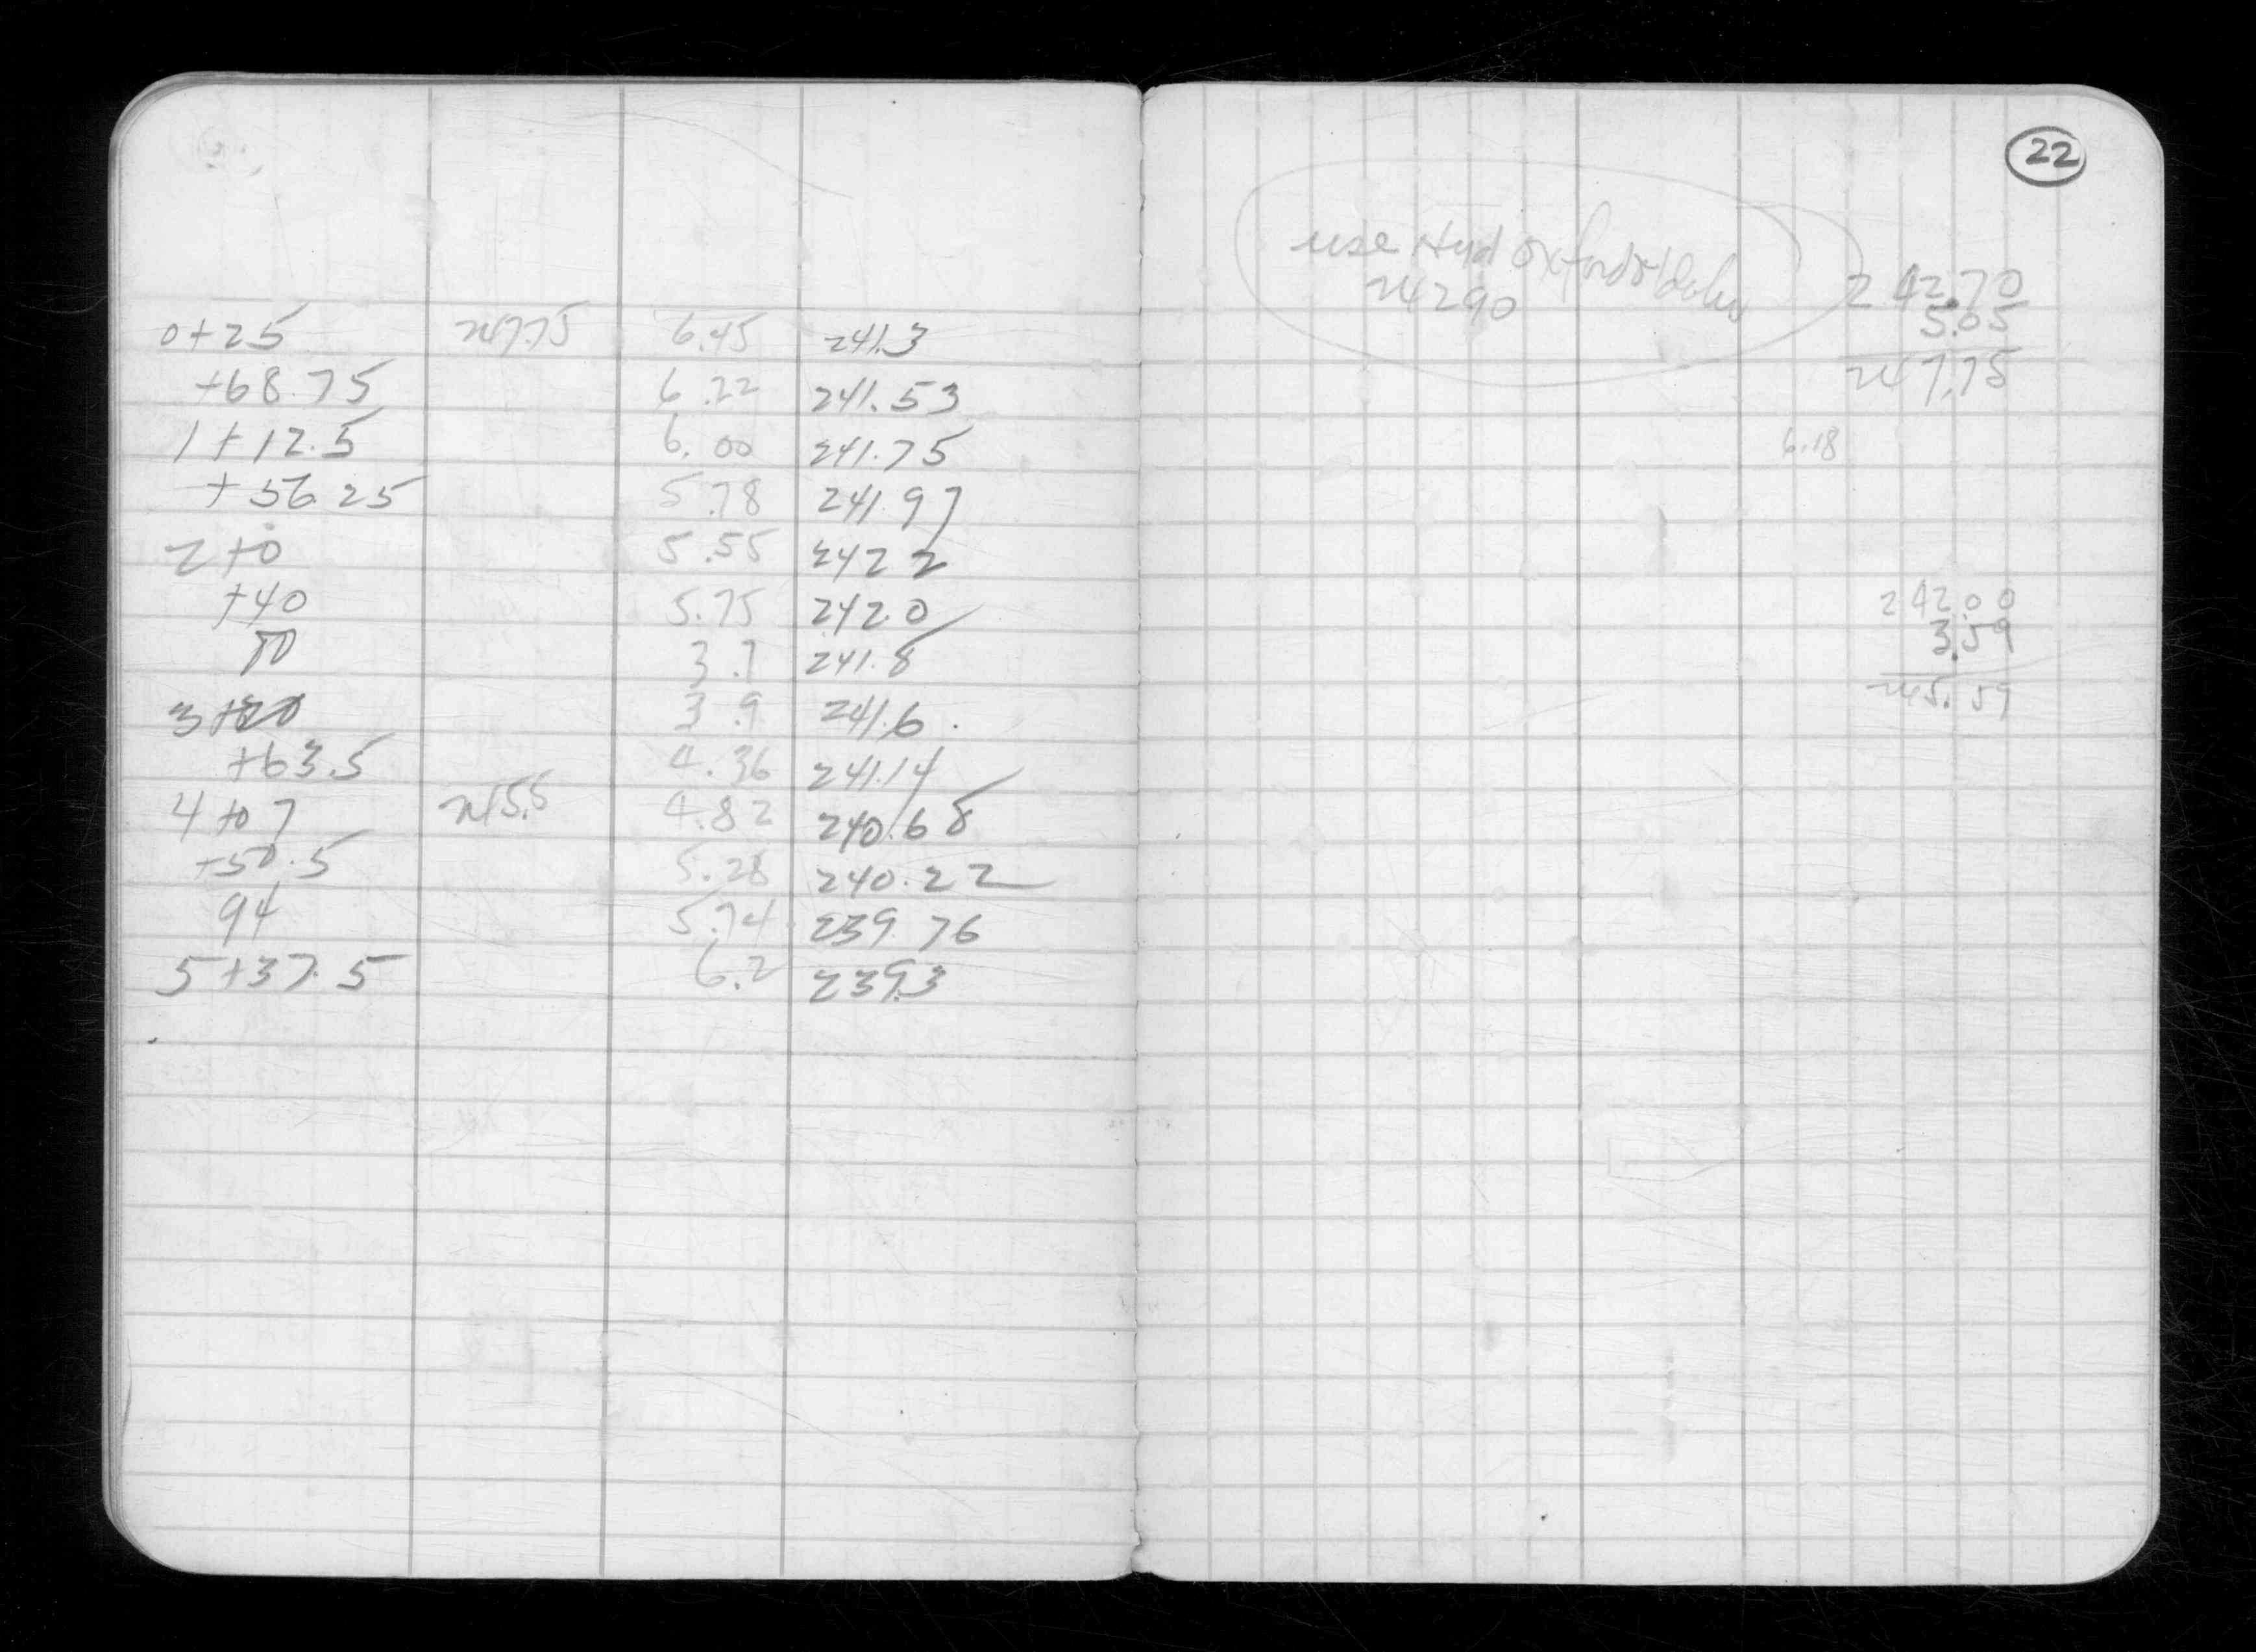 0+25 247.75 6.45 241.3
+68.75 6.22 241.53
1+12.5 6.00 241.75
+56.25 5.78 241.97
2+0 5.55 242.2
+40 5.75 242.0
80 3.7 241.8
3+20 3.9 241.6
+63.5 4.36 241.14
4+07 245.5 4.82 240.68
+50.5 5.28 240.22
94 5.74 239.76
5+37.5 6.2 239.3
22
use Hyd Oxford &
24290
242.70
5.05
247.75
6.18
242.00
3.59
245.59